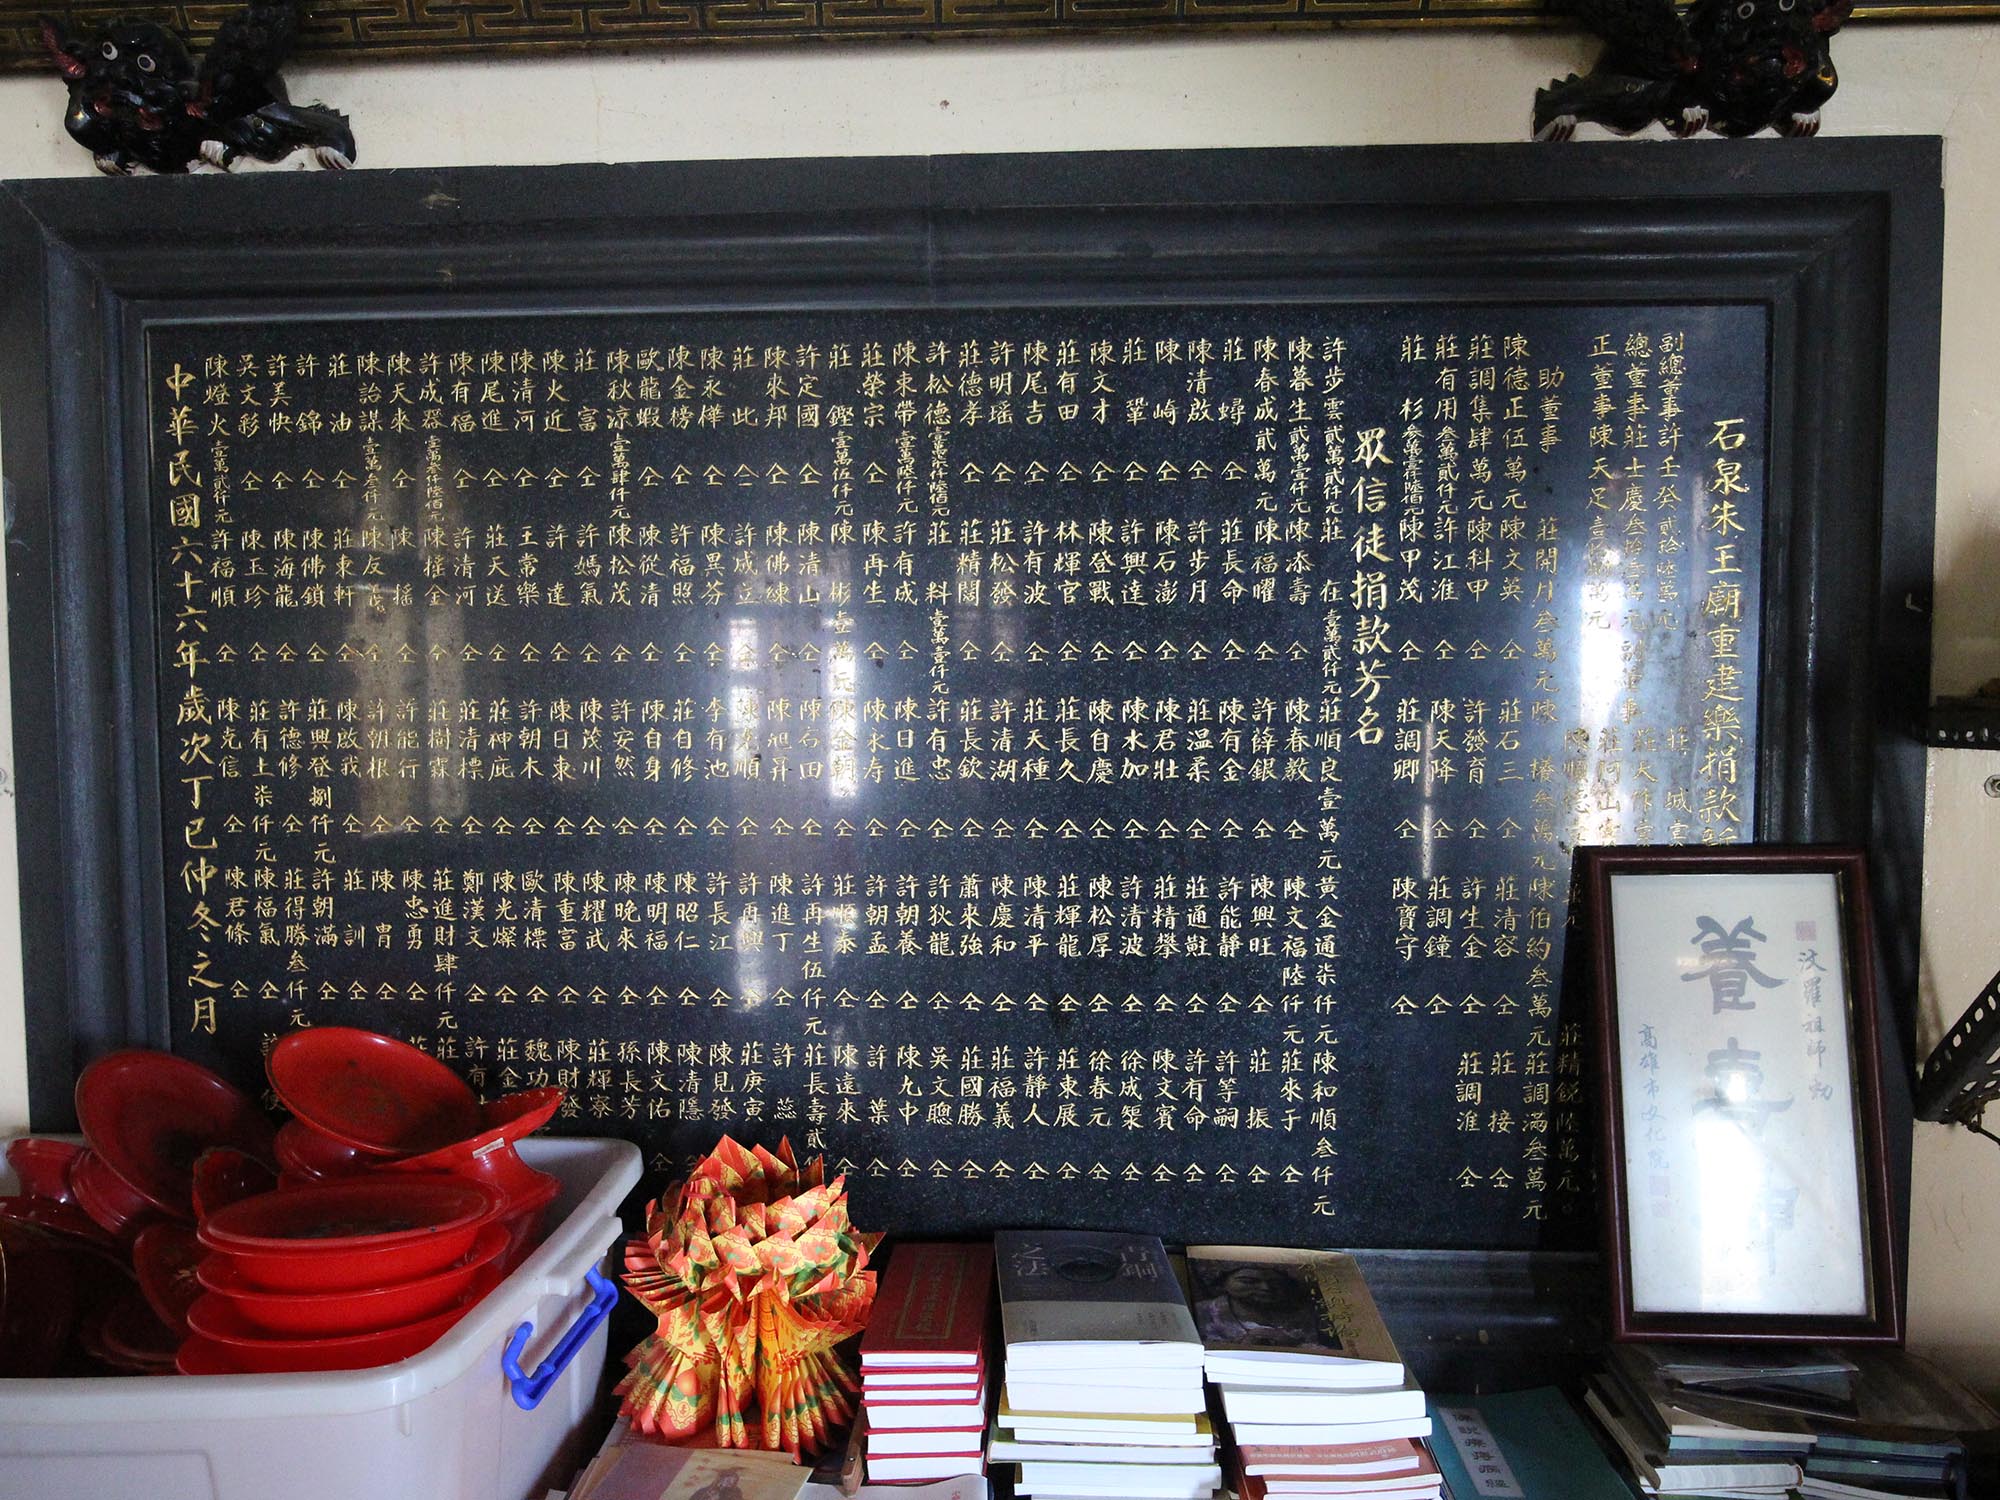 石泉朱王廟重建樂捐款
副總董事許壬癸貳拾陸萬元 莊 城
總董事莊士慶叁拾 萬元 副董事 莊天作
正董事陳天足壹拾 萬元 莊阿山
陳順德 莊精銳陸萬元
助董事 莊開月叁萬元 陳 椿叁萬元 陳伯約叁萬元 莊調滿叁萬元
陳德正伍萬元 陳文英 仝 莊石三 仝 莊清容 仝 莊 接 仝
莊調集肆萬元 陳科甲 仝 許發育 仝 許生金 仝 莊調淮 仝
莊有用叁萬貳仟元 許江淮 仝 陳天降 仝 莊調鐘 仝
莊 杉叁萬壹仟陸佰元 陳甲茂 仝 莊調卿 仝 陳寶守 仝
眾信徒捐款芳名
許步雲貳萬貳仟元 莊 在壹萬貳仟元 莊順良壹萬元 黃金通柒仟元 陳和順叁仟元
陳暮生貳萬壹仟元 陳添壽 仝 陳春教 仝 陳文福陸仟元 莊來子 仝
陳春成貳萬元 陳福曜 仝 許薛銀 仝 陳興旺 仝 莊 振 仝
莊 蟳 仝 莊長命 仝 陳有金 仝 許能靜 仝 許等嗣 仝
陳清啟 仝 許步月 仝 莊温柔 仝 莊通 仝 許有命 仝
陳 崎 仝 陳石澎 仝 陳君壯 仝 莊精攀 仝 陳文賓 仝
莊 鞏 仝 許興達 仝 陳水加 仝 許清波 仝 徐成 仝
陳文才 仝 陳登戰 仝 陳自慶 仝 陳松厚 仝 徐春元 仝
莊有田 仝 林輝官 仝 莊長久 仝 莊輝龍 仝 莊東展 仝
陳尾吉 仝 許有波 仝 莊天種 仝 陳清平 仝 許靜人 仝
許明瑶 仝 莊松發 仝 許清湖 仝 陳慶和 仝 莊福義 仝
莊德孝 仝 莊精閣 仝 莊長欽 仝 蕭來強 仝 莊國勝 仝
許松德壹萬柒仟陸佰元 莊 料壹萬壹仟元 許有忠 仝 許狄龍 仝 吳文聰 仝
陳東帶壹萬陸仟元 許有成 仝 陳日進 仝 許朝養 仝 陳九中 仝
莊榮宗 仝 陳再生 仝 陳水寿 仝 許朝孟 仝 許 葉 仝
莊 鏗壹萬伍仟元 陳 彬壹萬元 陳金朝 仝 莊順泰 仝 陳遠來 仝
許定國 仝 陳清山 仝 陳石田 仝 許再生伍仟元 莊長壽貳
陳來邦 仝 陳佛練 仝 陳旭昇 仝 陳進丁 仝 許 蕊
莊 此 仝 許成立 仝 陳光順 仝 許再興 仝 莊庚寅
陳永樺 仝 陳異芬 仝 李有池 仝 許長江 仝 陳見發
陳金榜 仝 許福照 仝 莊自修 仝 陳昭仁 仝 陳清隱
歐龍蝦 仝 陳從清 仝 陳自身 仝 陳明福 仝 陳文佑 仝
陳秋涼壹萬肆仟元 陳松茂 仝 許安然 仝 陳晚來 仝 孫長芳
莊 富 仝 許媽氣 仝 陳茂川 仝 陳耀武 仝 莊輝寮
陳火近 仝 許 達 仝 陳日東 仝 陳重富 仝 陳財發
陳清河 仝 王常樂 仝 許朝木 仝 歐清標 仝 魏功
陳尾進 仝 莊天送 仝 莊神庇 仝 陳光燦 仝 莊金
陳有福 仝 許清河 仝 莊清標 仝 鄭漢文 仝 許有
許成器壹萬叁仟陸佰元 陳榣金 仝 莊樹霖 仝 莊進財肆仟元 莊
陳天來 仝 陳 榣 仝 許能行 仝 陳忠勇 仝 莊
陳詒謀壹萬叁仟元 陳友義 仝 許朝根 仝 陳 胄 仝
莊 油 仝 莊東軒 仝 陳啟我 仝 莊 訓 仝
許 錦 仝 陳佛鎖 仝 莊興登捌仟元 許朝滿 仝
許美快 仝 陳海龍 仝 許德修 仝 莊得勝叁仟元
吳文彩 仝 陳玉珍 仝 莊有土柒仟元 陳福氣 仝 許 使
陳燈火壹萬貳仟元 許福順 仝 陳克信 仝 陳君條 仝
中華民國六十六年歲次丁巳仲冬之月
汶羅祖師勅
養
高雄市文化院
古銅之法